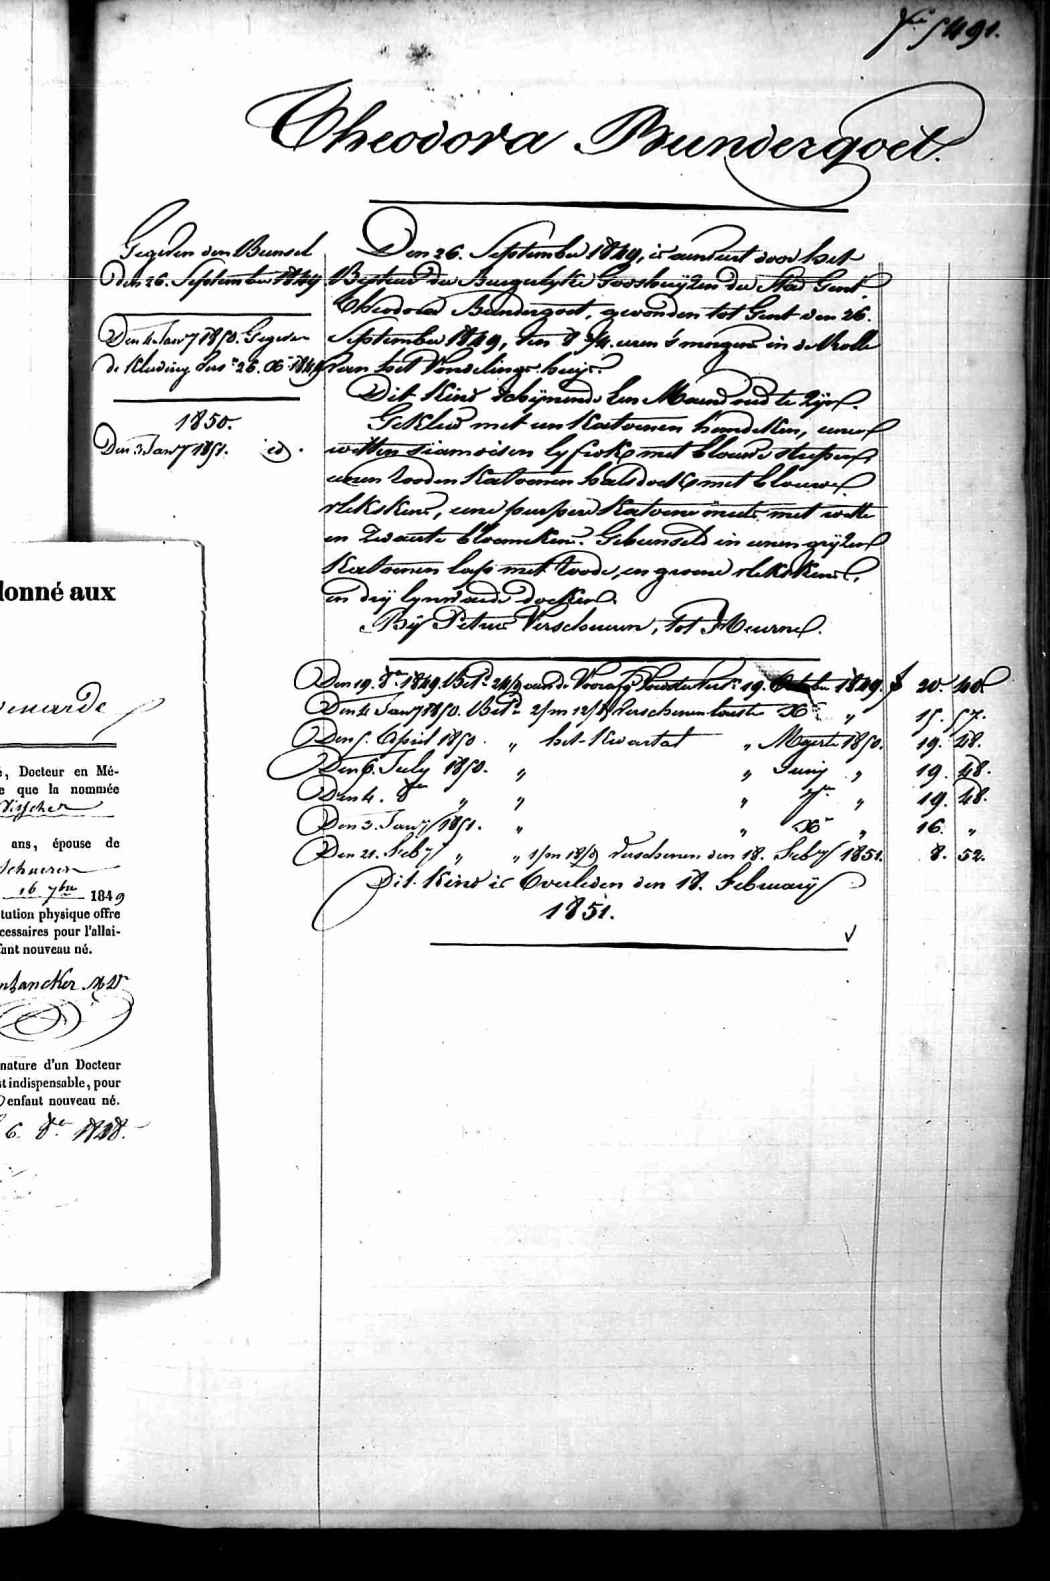 5491.
Theodora Bundergoet.
Gegeven den Bunsel
den 26. September 1849
Den 4. Jan.ry 1850. Gegeven
de Kleeding
1850.
Den 3. Jan.ry 1851. id.
Den 26. September 1849, is aenveert door het
Bestuur der Burgerlyke Godshuyzen der Stad Gent
Theodora Bundergoet, gevonden tot Gent den 26.
September 1849, ten 8 3/4 uren 's morgens in de Rolle
van het Vondelingshuys.
Dit Kind schynende een Maend oud te zyn.
Gekleed met een Katoenen hemdeken, eenen
witten siamoisen lyfrok met blauwe strepen,
eenen rooden Katoenen halsdoek met blauwe
vlekskens, eene purpere Katoene muts met witte
en zwarte bloemekens. Gebunseld in eenen gryzen
Katoenen lap met roode, en groene vlekskens,
en dry lynwaede doeken.
By Petrus Verschueren, tot Meurne.
Den 19. 8.re 1849. 19. 1849. f 20. 40.
Den 4 Jan.ry 1850. 2/m 12/d Verschenen X.re „ 15. 57.
Den 5. April 1850. „ het Kwartael „ Maerte 1850. 19. 28.
Den 6. July 1850. „ „ Juny „ 19. 48.
Den 4. 8.re „ „ „ 7.re „ 19. 48.
Den 3. Jan.ry 1851. „ „ X.re „ 16. „
Den 21. Feb.ry „ „ 1/m 18/d Verschenen den 18. Feb.ry 1851. 8. 52.
Dit Kind is Overleden den 18. February
1851.
donné aux
, Docteur en Mé-
e que la nommée
Visscher
ans, épouse de
schueren
16. 7bre 1849
tution physique offre
cessaires pour l'allai-
fant nouveau né.
nature d'un Docteur
st indispensable, pour
enfant nouveau né.
6. 8.re 1848.